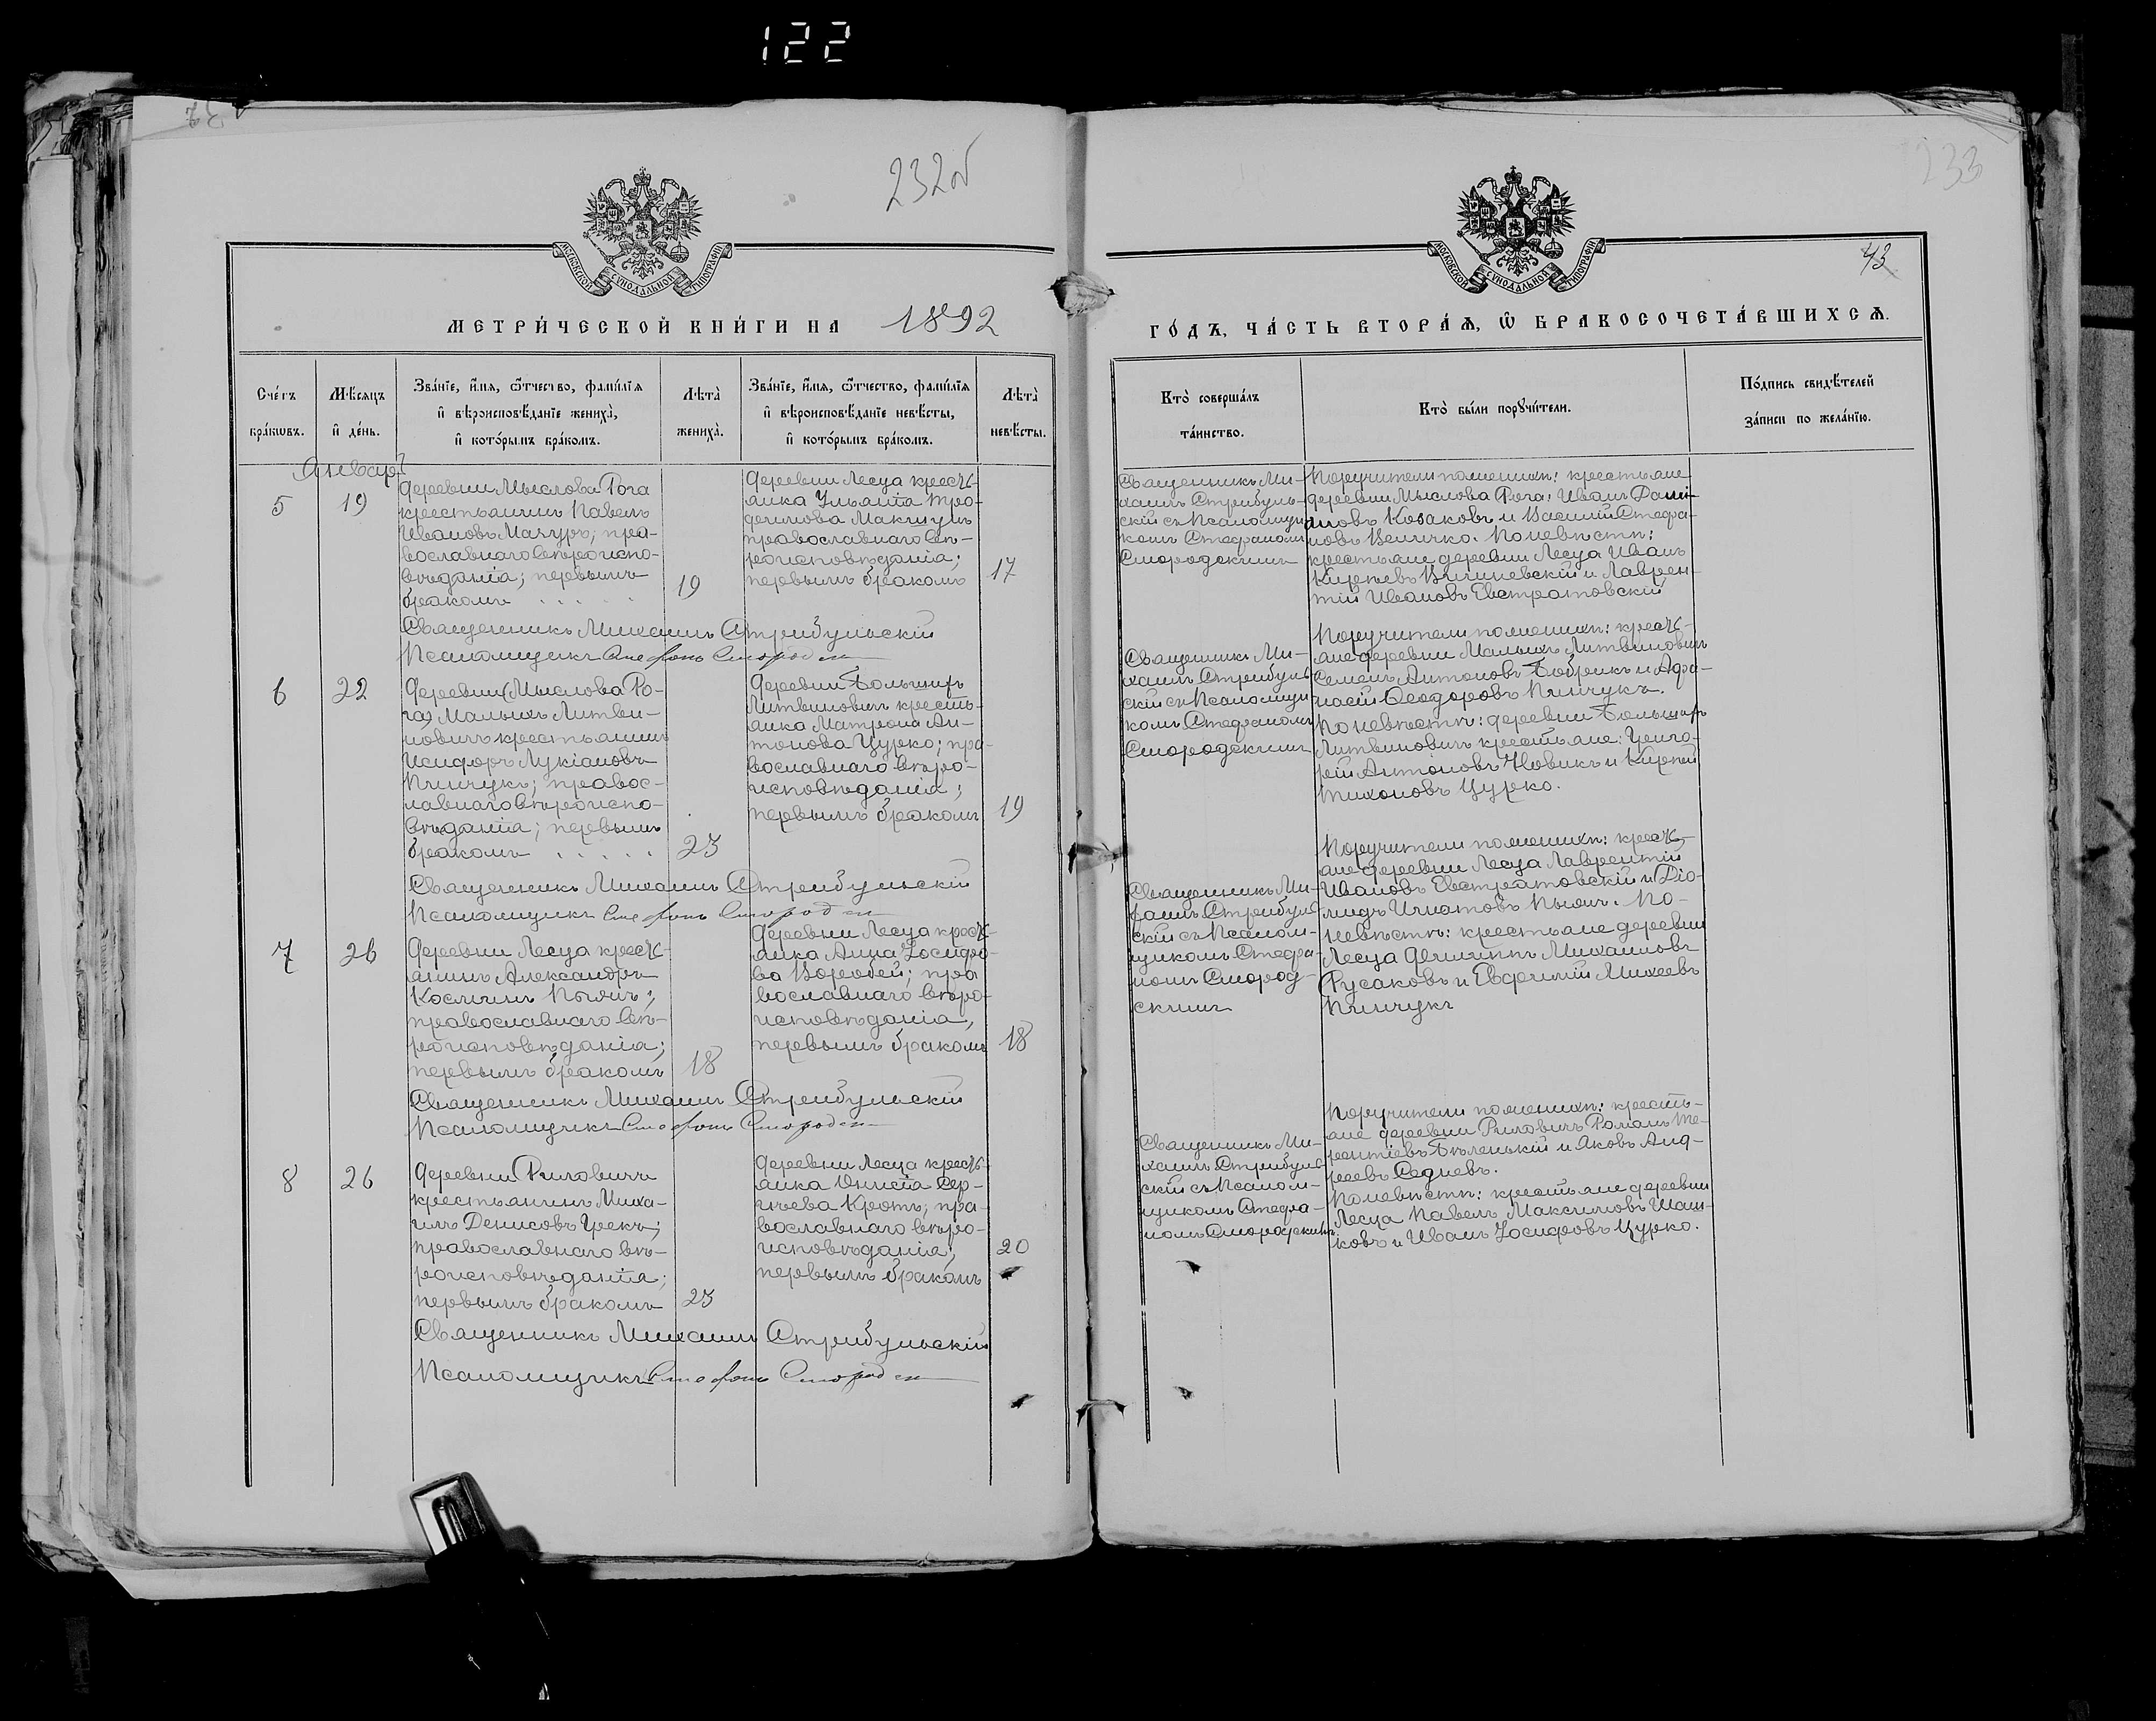 122
232об
233
43
МОСКОВСКОЙ СѴНОДАЛЬНОЙ ТИПОГРАФІИ
МОСКОВСКОЙ СѴНОДАЛЬНОЙ ТИПОГРАФІИ
МЕТРИ́ЧЕСКОЙ КНИ́ГИ НА 1892
ГО́ДЪ, ЧА́СТЬ ВТОРА́Ѧ, Ѽ БРАКОСОЧЕТА́ВШИХСѦ.
Сче́тъ
бра́кѡвъ.
Мѣ́сяцъ
и҆ де́нь.
Зва́нїе, и҆́мѧ, ѻ҆́тчество, фами́лїѧ
и҆ вѣроисповѣ́данїе жениха̀,
и҆ кото́рымъ бра́комъ.
Лѣта̀
жениха̀.
Зва́нїе, и҆́мѧ, ѻ҆́тчество, фами́лїѧ
и҆ вѣроисповѣ́данїе невѣ́сты,
и҆ кото́рымъ бра́комъ.
Лѣта̀
невѣ́сты.
Кто̀ соверша́лъ
та́инство.
Кто̀ бы́ли порꙋчи́тели.
По́дпись свидѣ́телей
за́писи по жела́нїю.
Январ
5
19
Деревни Мыслова Рога
крестьянинъ Павелъ
Ивановъ Мачуръ; пра-
вославнаго вѣроиспо-
вѣданія; первымъ
бракомъ . . . . .
19
Деревни Лесца крестъ-
янка Ульянія Тро-
фимова Макшунъ
православнаго вѣ-
роисповѣданія;
первымъ бракомъ
17
Священникъ Ми-
хаилъ Стрибуль-
скій съ Псаломщи
комъ Стефаномъ
Смородскимъ
Поручители по женихѣ: крестьяне
деревни Мыслова Рога: Иванъ Дами-
ановъ Козаковъ и Василій Стефа-
новъ Величко. По невѣстѣ:
крестьяне деревни Лесца Иванъ
Кирѣевъ Вишневскій и Лаврен-
тій Ивановъ Евстратовскій
Священникъ Михаилъ Стрибульскій
Псаломщикъ Стефанъ Смородск
6
22
Деревни (Мыслова Ро-
га) Малыхъ Литви-
новичъ крестьянинъ
Исидоръ Лукіановъ
Пинчукъ; правос-
лавнаго вѣроиспо-
вѣданія; первымъ
бракомъ . . . . .
23
Деревни Большихъ
Литвиновичъ кресть-
янка Матрона Ан-
тонова Цурко; пра-
вославнаго вѣро-
исповѣданія;
первымъ бракомъ
19
Священникъ Ми-
хаилъ Стрибуль
скій съ Псаломщи
комъ Стефаномъ
Смородскимъ
Поручители по женихѣ: кресть-
яне деревни Малыхъ Литвиновичъ
Семенъ Антоновъ Бобрикъ и Афа-
насій Ѳеодоровъ Пинчукъ.
По невѣстѣ: деревни Большихъ
Литвиновичъ крестьяне: Григо-
рій Антоновъ Новикъ и Кирѣй
Тихоновъ Цурко.
Священникъ Михаилъ Стрибульскій
Псаломщикъ Стефанъ Смородск
7
26
Деревни Лесца кресть-
янинъ Александръ
Косминъ Пыянъ;
православнаго вѣ-
роисповѣданія;
первымъ бракомъ
18
Деревни Лесца кресть-
янка Анна Іосифо-
ва Воробей; пра
вославнаго вѣро-
исповѣданія,
первымъ бракомъ
18
Священникъ Ми-
хаилъ Стрибуль
скій съ Псалом-
щикомъ Стефа-
номъ Смород-
скимъ
Поручители по женихѣ: кресть-
яне деревни Лесца Лаврентій
Ивановъ Евстратовскій и Діо-
мидъ Игнатовъ Пыянъ. По-
невѣстѣ: крестьяне деревни
Лесца Филиппъ Михаиловъ
Русаковъ и Евфимій Михеевъ
Пинчукъ
Священникъ Михаилъ Стрибульскій
Псаломщикъ Стефанъ Смородск
8
26
Деревни Риловичъ
крестьянинъ Миха-
илъ Денисовъ Грекъ;
православнаго вѣ-
роисповѣданія;
первымъ бракомъ
23
Деревни Лесца кресть-
янка Онисія Сер-
гѣева Кротъ; пра-
вославнаго вѣро-
исповѣданія;
первымъ бракомъ
20
Священникъ Ми-
хаилъ Стрибуль
скій съ Псалом-
щикомъ Стефа-
номъ Смородскимъ
Поручители по женихѣ: кресть-
яне деревни Риловичъ Романъ Те-
рентіевъ Бѣленькій и Яковъ Анд-
реевъ Седневъ.
По невѣстѣ: крестьяне деревни
Лесца Павелъ Максимовъ Шаш-
ковъ и Иванъ Іосифовъ Цурко.
Священникъ Михаилъ Стрибульскій
Псаломщикъ Стефанъ Смородск